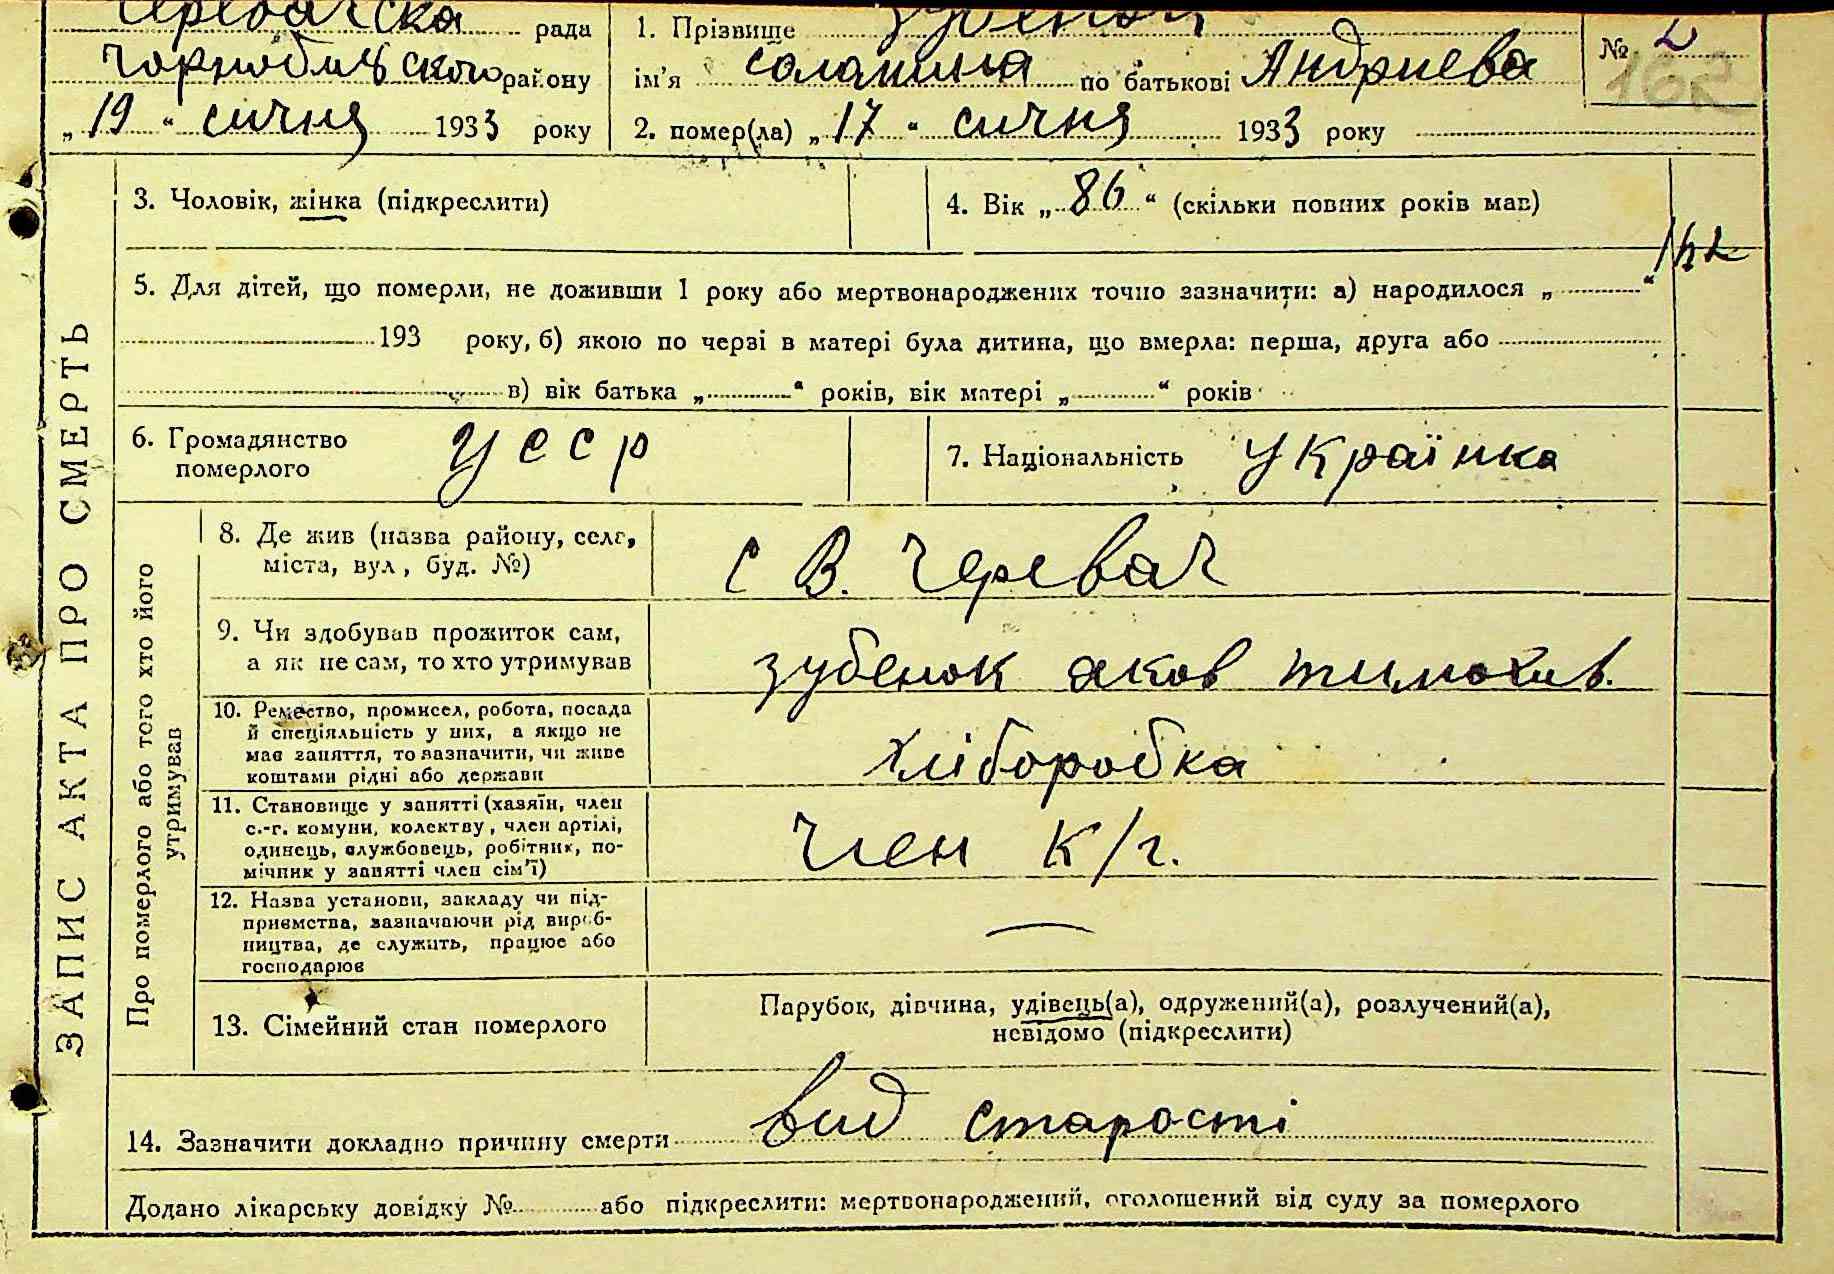 Черевачска рада
Чорнобильского району
„ 19 “ сичня 1933 року
1. Прізвище Зубенок
ім’я Соломина по батькові Андриева
2. помер(ла) „ 17 “ сичня 1933 року
№ 2
162
3. Чоловік, жінка (підкреслити)
4. Вік „ 86 “ (скільки повних років мав)
5. Для дітей, що померли, не доживши 1 року або мертвонароджених точно зазначити: а) народилося „ “
193 року, б) якою по черзі в матері була дитина, що вмерла: перша, друга або
в) вік батька „ “ років, вік матері „ “ років
6. Громадянство
померлого
УССР
7. Національність Українка
ЗАПИС АКТА ПРО СМЕРТЬ
Про померлого або того хто його
утримував
8. Де жив (назва району, села,
міста, вул, буд. №)
с В. Черевач
9. Чи здобував прожиток сам,
а як не сам, то хто утримував
Зубенок Яков Тимохив.
10. Ремество, промисел, робота, посада
й спеціяльність у них, а якщо не
мав заняття, то зазначити, чи живе
коштами рідні або держави
Хліборобка
11. Становище у занятті (хазяїн, член
с.-г. комуни, колектву, член артілі,
одинець, службовець, робітник, по-
мічник у занятті член сім’ї)
Член к/г.
12. Назва установи, закладу чи під-
приємства, зазначаючи рід вироб-
ництва, де служить, працює або
господарює
—
13. Сімейний стан померлого
Парубок, дівчина, удівець(а), одружений(а), розлучений(а),
невідомо (підкреслити)
14. Зазначити докладно причину смерти вид старості
Додано лікарську довідку № або підкреслити: мертвонароджений, оголошений від суду за померлого